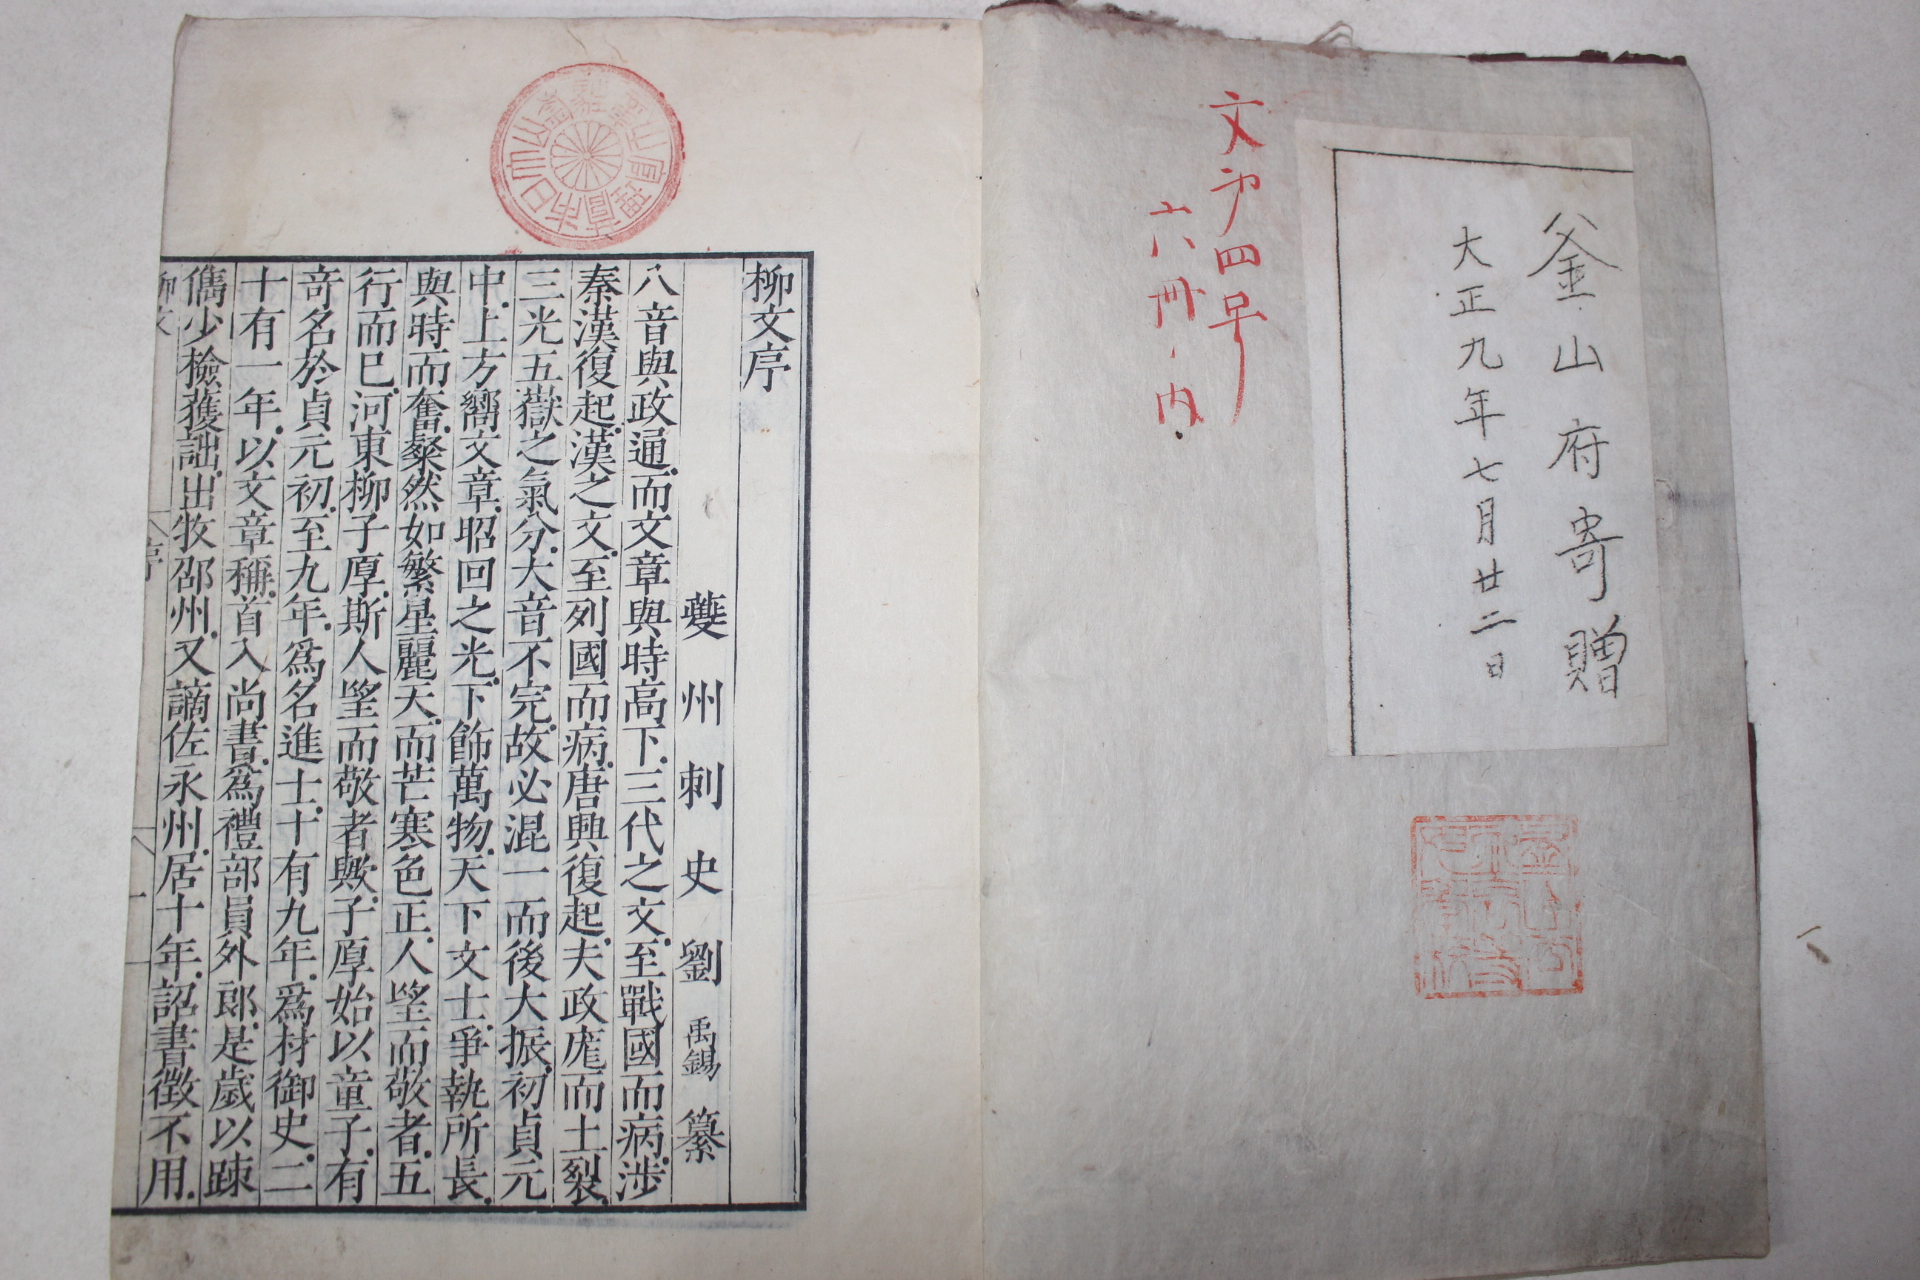 釜山府寄贈
大正九年七月廿二日
文部四号
六冊ノ内
柳文序
夔州刺史劉禹錫纂
八音與政通.而文章與時高下.三代之文.至戰國而病.涉
秦漢復起.漢之文.至列國而病.唐興復起.夫政厖而土裂.
三光五嶽之氣分.大音不完.故必混一而後大振.初貞元
中.上方嚮文章.昭回之光.下飾萬物.天下文士.爭執所長.
與時而奮.粲然如繁星麗天.而芒寒色正.人望而敬者.五
行而已.河東柳子厚.斯人望而敬者歟.子厚始以童子.有
奇名於貞元初.至九年.爲名進士.十有九年.爲材御史.二
十有一年.以文章稱.首入尚書.爲禮部員外郎.是歲以疎
儁少檢獲訕.出牧邵州.又謫佐永州.居十年.詔書徵不用.
柳文
序
一